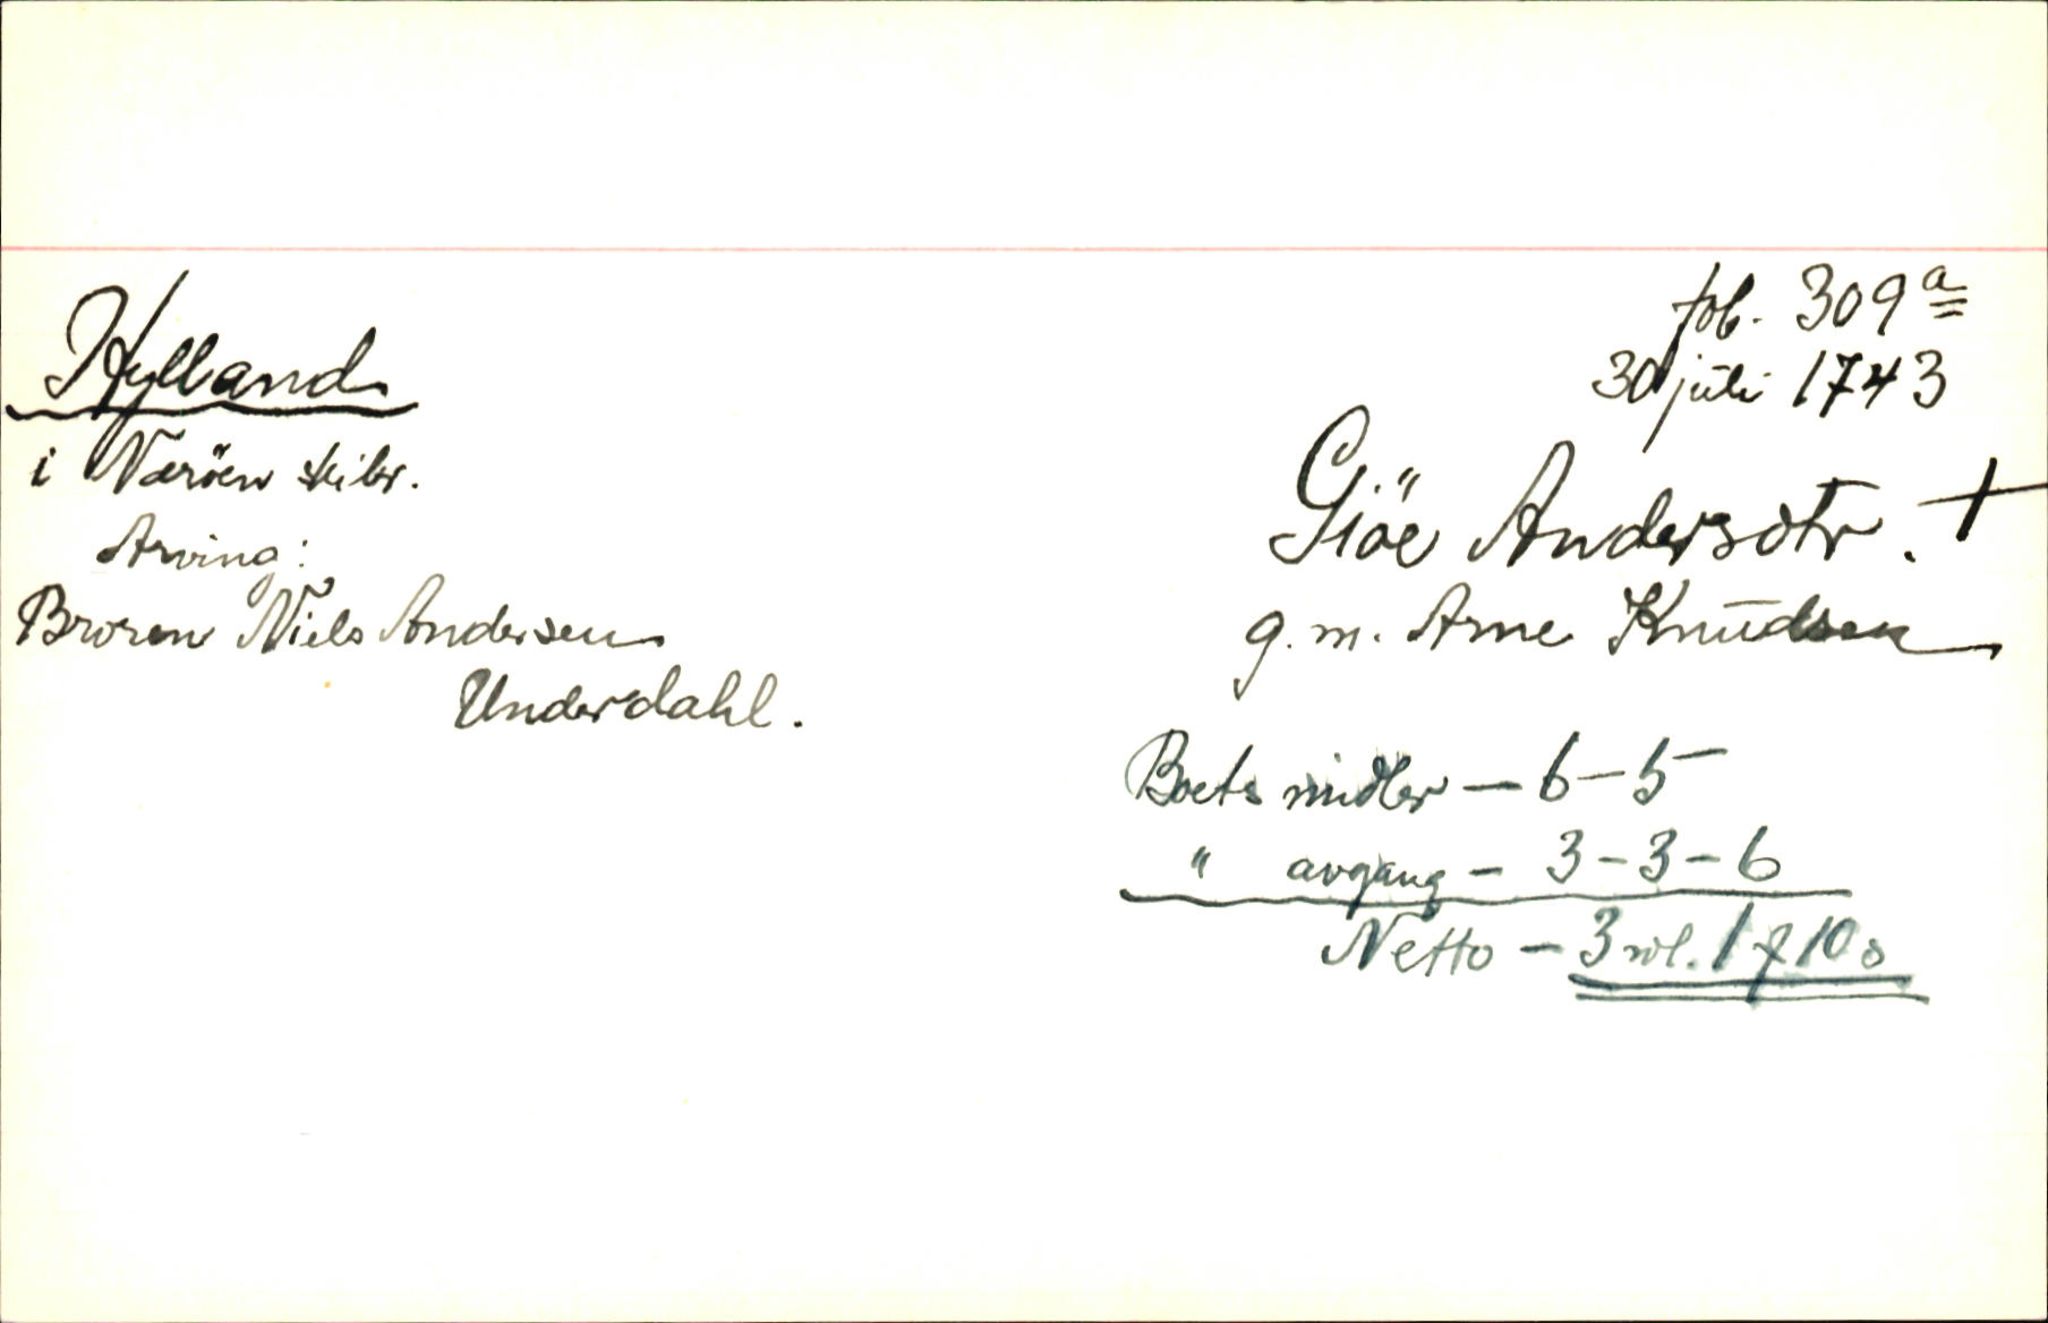 fol. 309a
30 juli 1743
Hylland
i Næröen skibr.
Arving:
Broren Niels Andersen
Underdahl.
Giöe Andersdtr. +
g. m. Arne Knudsen
Boets midler - 6 - 5 -
" avgang - 3 - 3 - 6
Netto - 3 rdl. 1 ƒ 10 s